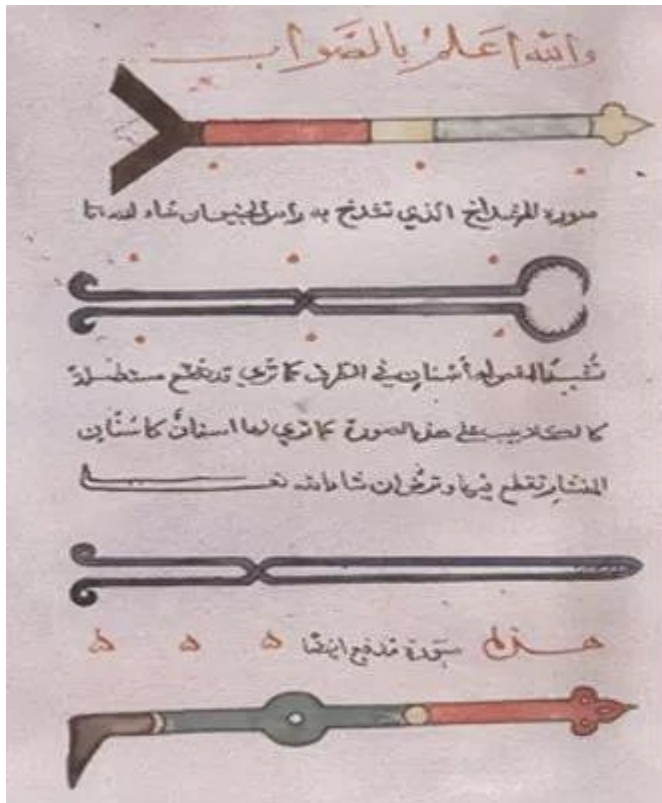 والله اعلم بالصواب
صورة المشداخ الذي تشدخ به راس الجنين ان شاء الله تعا
أسنان في الطرف كما ترى قد تصنع مستطيلة
كا لكلاليب على هذه الصورة كما ترى لها اسنان كاسنان
المنشار تقطع فيها وترض ان شاء الله تعلى
هذه صورة مدفع ايضا ه ه ه